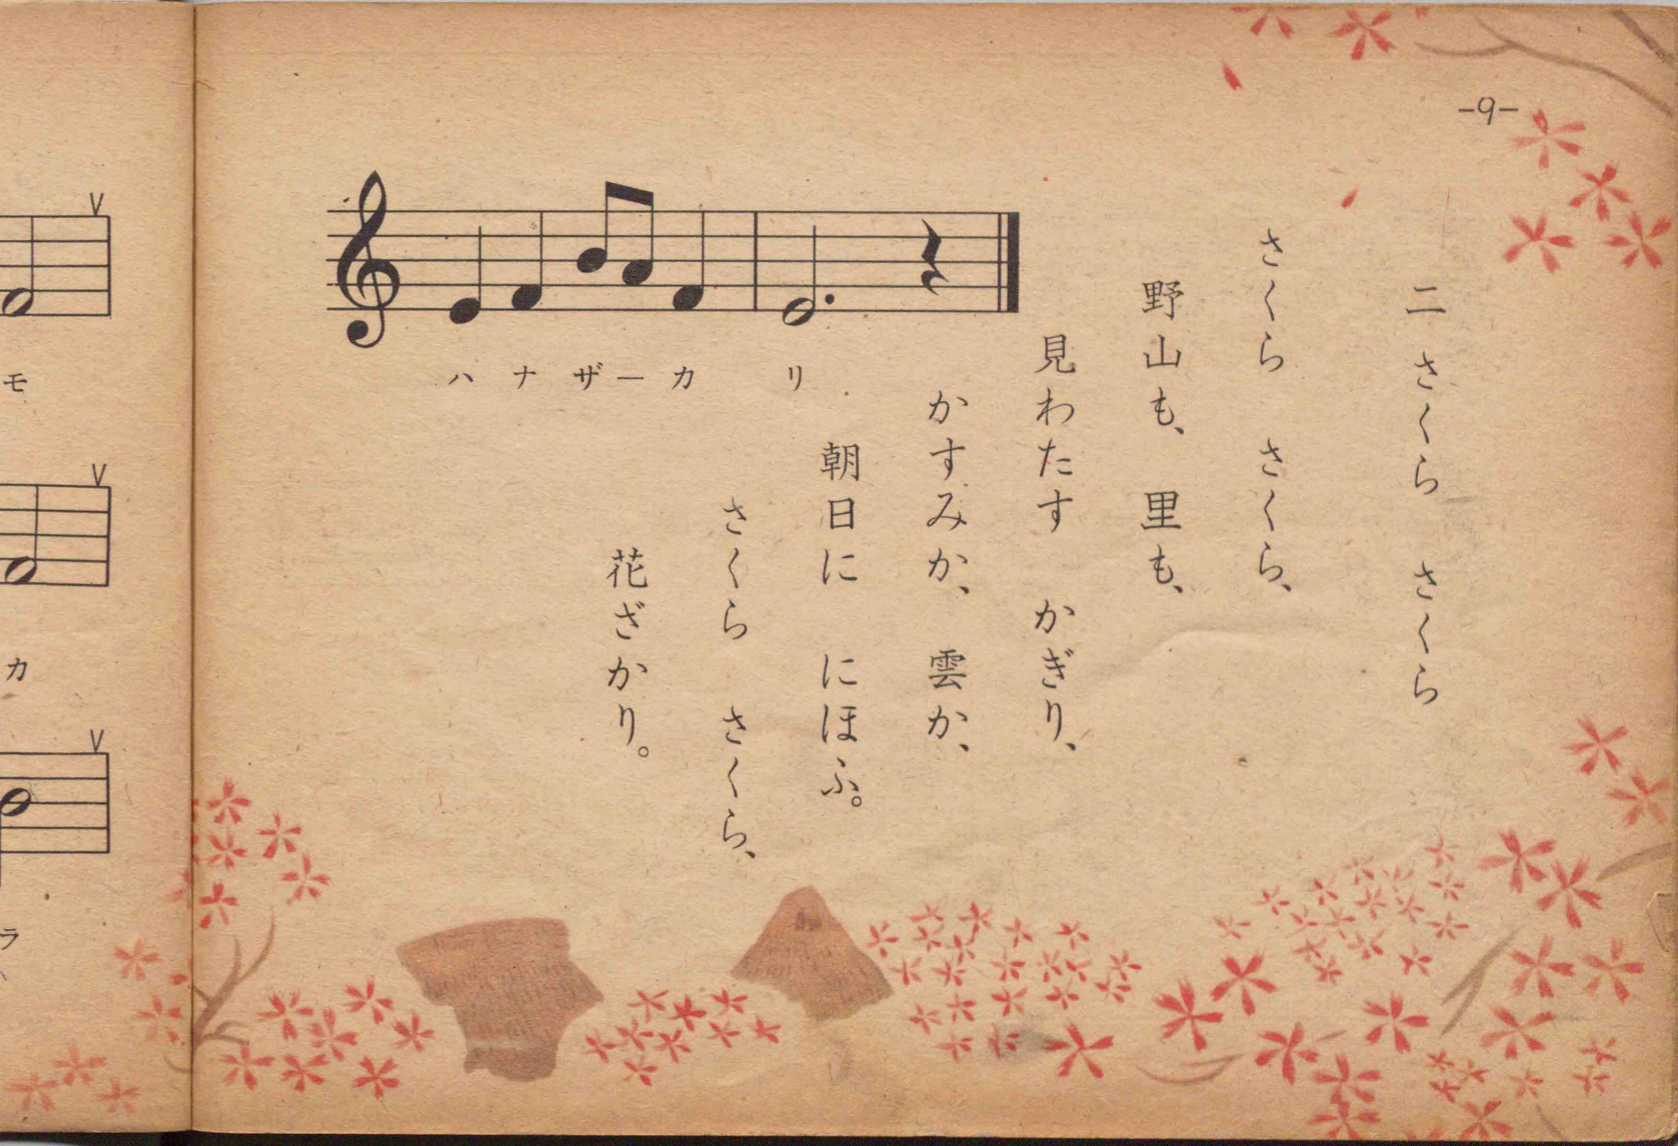 -9-
ハナザーカリ
二 さくら さくら
さくら さくら、
野山も、里も、
見わたす かぎり、
かすみか、雲か、
朝日に にほふ。
さくら さくら、
花ざかり。
モ
カ
ラ